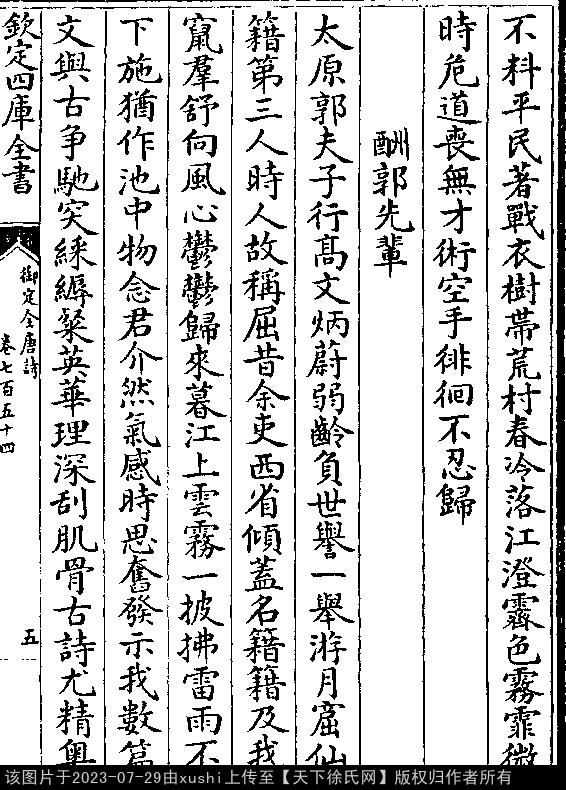 不料平民著戰衣樹帶荒村春冷落江澄霽色霧霏微
時危道喪無才術空手徘徊不忍歸
酬郭先輩
太原郭夫子行高文炳蔚弱齡負世譽一舉游月窟仙
籍第三人時人故稱屈昔余吏西省傾蓋名籍籍及我
竄羣舒向風心鬱鬱歸來暮江上雲霧一披拂雷雨不
下施猶作池中物念君介然氣感時思奮發示我數篇
文與古争馳突綵縟粲英華理深刮肌骨古詩尤精奥
欽定四庫全書
御定全唐詩
卷七百五十四
五
该图片于2023-07-29由xushi上传至【天下徐氏网】版权归作者所有